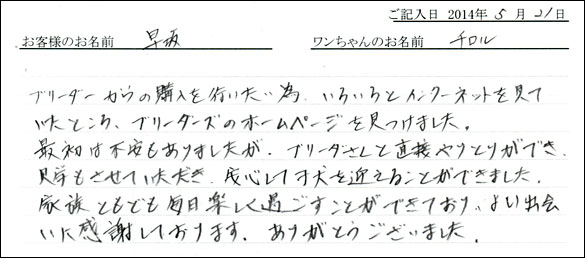 ご記入日 2014年 5 月 21日
お客様のお名前 早坂 ワンちゃんのお名前 チロル
ブリーダーからの購入を行いたい為、いろいろとインターネットを見て
いたところ、ブリーダーズのホームページを見つけました。
最初は不安もありましたが、ブリーダさんと直接やりとりができ、
見学もさせていただき、安心して子犬を迎えることができました。
家族ともども毎日楽しく過ごすことができており、よい出会
いに感謝しております。ありがとうございました。